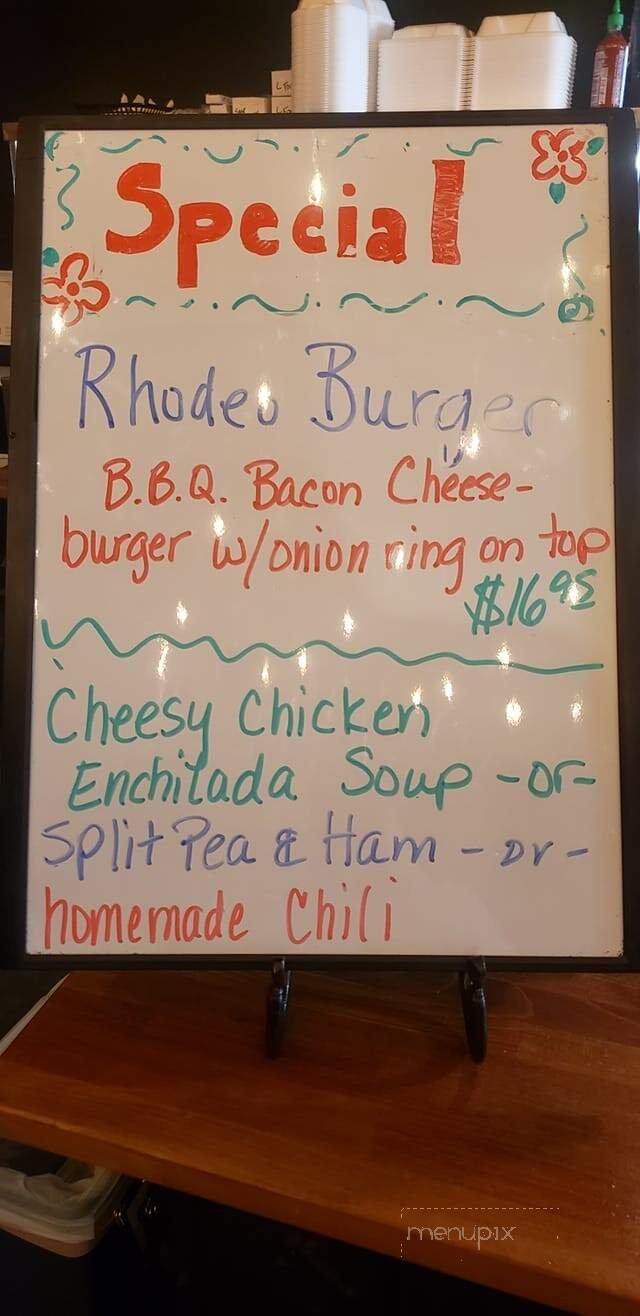 Special
Rhodeo Burger
B.B.Q. Bacon Cheese-
burger w/onion ring on top
$16.95
Cheesy Chicken
Enchilada Soup -or-
Split Pea & Ham -or-
homemade Chili
menupix